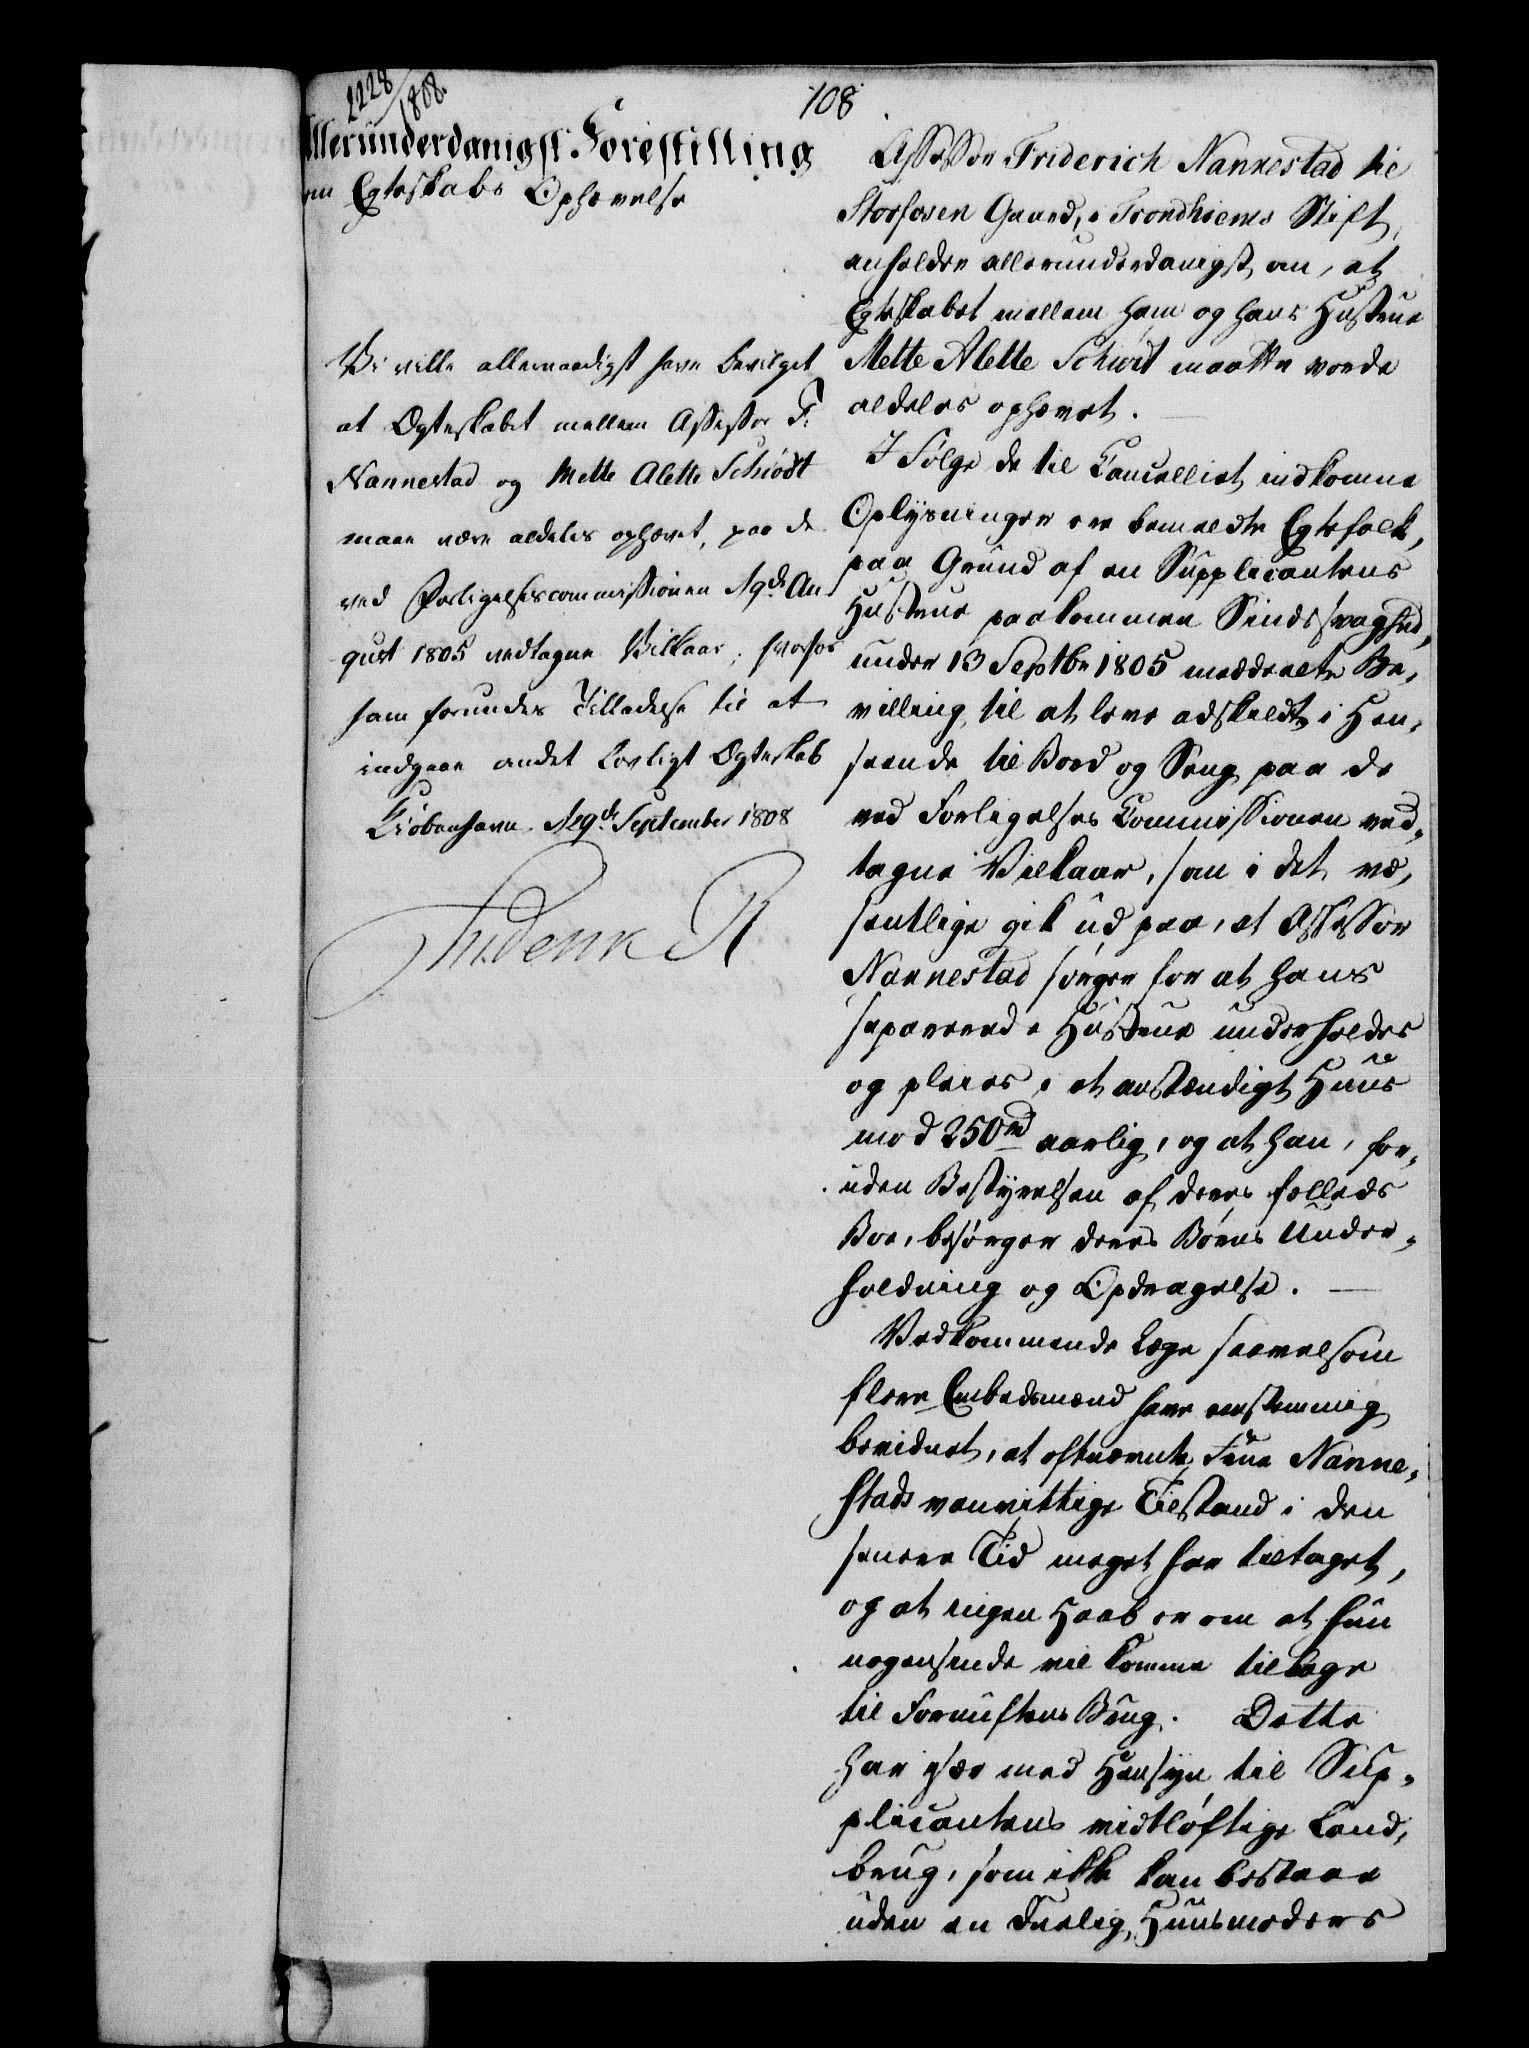 2228/1808.
108
Allerunderdanigst Forestilling
om Egteskabs Ophævelse
Vi ville allernaadigst have bevilget
at Ægteskabet mellem Assessor F:
Nannestad og Mette Alette Schiödt
maae være aldeles ophævet, paa de
ved Forligelsescommissionen
August 1805 vedtagne Vilkaar, hvorhos
ham forundes Tilladelse til at
indgaae andet lovligt Ægteskab
Kiöbenhavn September 1808
Friderik R
Assessor Friderich Nannestad til
Storfosen Gaard, i Trondhiems Stift,
anholder allerunderdanigst om, at
Egteskabet mellem ham og hans Hustrue
Mette Alette Schiödt maatte vorde
aldeles ophævet.
I Følge de til Cancelliet indkomne
Oplysninger ere bemeldte Egtefolk,
paa Grund af en Supplicantens
Hustrue paakommen Sindssvaghed,
under 13 Septbr 1805 meddeelte Be-
villing til at leve adskildt i Hen-
seende til Bord og Seng paa de
ved Forligelses Commissionen ved-
tagne Vilkaar, som i det væ-
sentlige gik ud paa, at Assessor
Nannestad sørger for at hans
separerede Hustrue underholdes
og pleies i et anstændigt Huus
mod 250 rd aarlig, og at han, for-
uden Bestyrelsen af deres fælleds
Boe, besørger deres Børns Under-
holdning og Opdragelse.
Vedkommende Læge saavelsom
flere Embedsmænd have eenstemmig
bevidnet, at oftnævnte Frue Nanne-
stads vanvittige Tilstand i den
senere Tid meget har tiltaget,
og at ingen Haab er om at hun
nogensinde vil komme tilbage
til Fornuftens Brug. Dette
har især med Hensyn til Sup-
plicantens vidtløftige Land-
brug, som ikke kan bestaae
uden en duelig Huusmoders